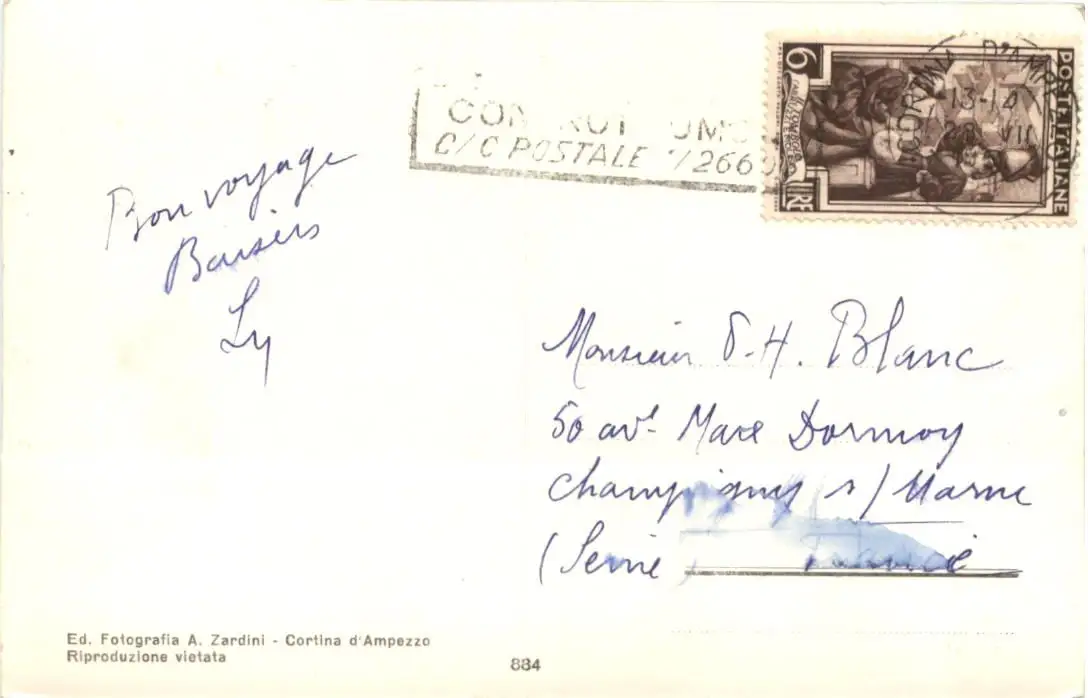 CON
C/C POSTALE 1/266
6
LIRE
POSTE ITALIANE
CORTINA D'AMPEZZO
13-14
VII
Bon voyage
Baisers
Ly
Monsieur P.H. Blanc
50 av. Marx Dormoy
Champigny s/Marne
(Seine) France
Ed. Fotografia A. Zardini - Cortina d'Ampezzo
Riproduzione vietata
884